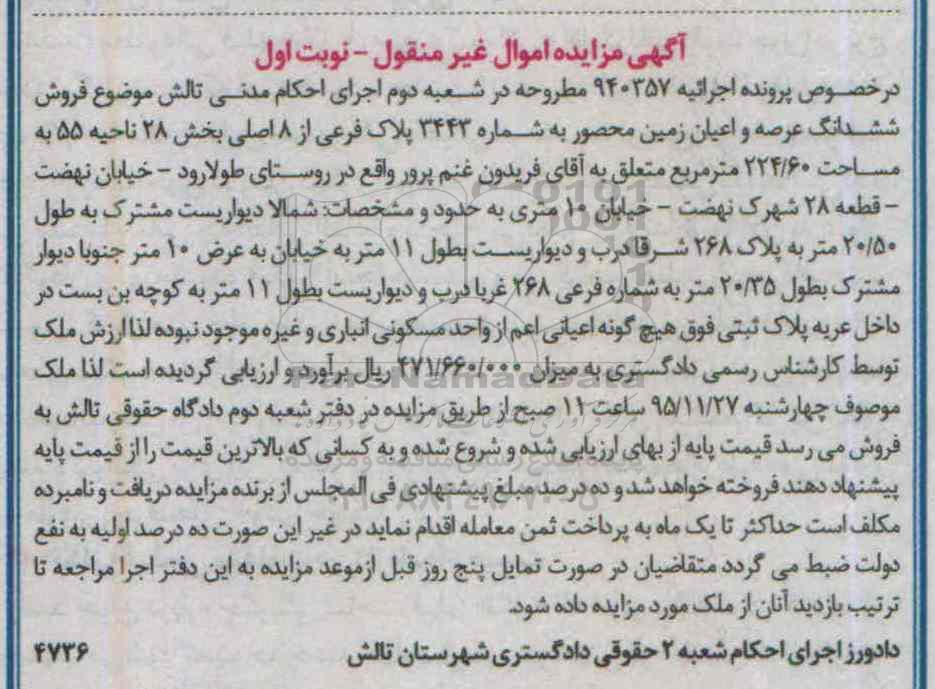 آگهی مزایده اموال غیر منقول - نوبت اول
درخصوص پرونده اجرائیه ۹۴۰۳۵۷ مطروحه در شعبه دوم اجرای احکام مدنی تالش موضوع فروش
ششدانگ عرصه و اعیان زمین محصور به شماره ۳۴۴۳ پلاک فرعی از ۸ اصلی بخش ۲۸ ناحیه ۵۵ به
مساحت ۲۲۴/۶۰ مترمربع متعلق به آقای فریدون غنم پرور واقع در روستای طولارود - خیابان نهضت
- قطعه ۲۸ شهرک نهضت - خیابان ۱۰ متری به حدود و مشخصات: شمالا دیواریست مشترک به طول
۲۰/۵۰ متر به پلاک ۲۶۸ شرقا درب و دیواریست بطول ۱۱ متر به خیابان به عرض ۱۰ متر جنوبا دیوار
مشترک بطول ۲۰/۳۵ متر به شماره فرعی ۲۶۸ غربا درب و دیواریست بطول ۱۱ متر به کوچه بن بست در
داخل عربه پلاک ثبتی فوق هیچ گونه اعیانی اعم از واحد مسکونی انباری و غیره موجود نبوده لذا ارزش ملک
توسط کارشناس رسمی دادگستری به میزان ۴۷۱/۶۶۰/۰۰۰ ریال برآورد و ارزیابی گردیده است لذا ملک
موصوف چهارشنبه ۹۵/۱۱/۲۷ ساعت ۱۱ صبح از طریق مزایده در دفتر شعبه دوم دادگاه حقوقی تالش به
فروش می رسد قیمت پایه از بهای ارزیابی شده و شروع شده و به کسانی که بالاترین قیمت را از قیمت پایه
پیشنهاد دهند فروخته خواهد شد و ده درصد مبلغ پیشنهادی فی المجلس از برنده مزایده دریافت و نامبرده
مکلف است حداکثر تا یک ماه به پرداخت ثمن معامله اقدام نماید در غیر این صورت ده درصد اولیه به نفع
دولت ضبط می گردد متقاضیان در صورت تمایل پنج روز قبل ازموعد مزایده به این دفتر اجرا مراجعه تا
ترتیب بازدید آنان از ملک مورد مزایده داده شود.
دادورز اجرای احکام شعبه ۲ حقوقی دادگستری شهرستان تالش ۴۷۳۶
ParsNamadData